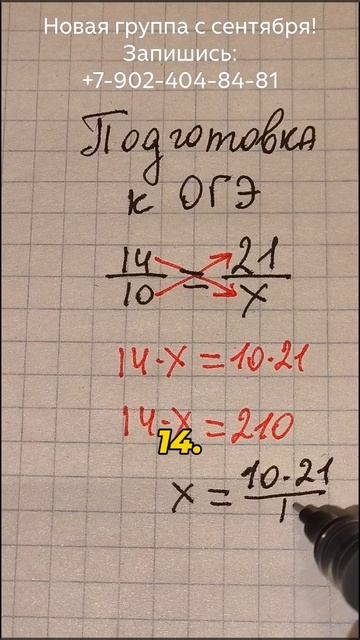 Новая группа с сентября!
Запишись:
+7-902-404-84-81
Подготовка
к ОГЭ
14/10 = 21/x
14·x = 10·21
14·x = 210
14.
x = 10·21/1